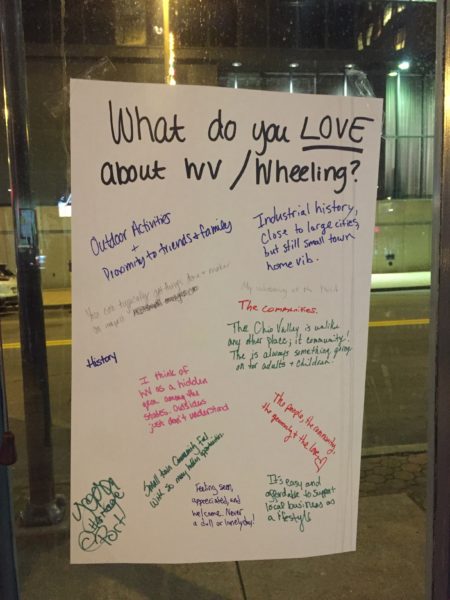 What do you LOVE
about WV / Wheeling?
Outdoor Activities
+
Proximity to friends + family
Industrial history,
close to large cities,
but still small town
home vib.
You can typically get things done + make
an impact
My
of the
The communities.
The Ohio Valley is unlike
any other place; it community!
The is always something going
on for adults + children.
History
I think of
WV as a hidden
gem among the
states, outsiders
just don't understand
The people, the community,
the generosity + the love
Small town Community Feel
with so many hidden
Feeling seen,
appreciated, and
welcome. Never
a dull or lonely day!
It's easy and
affordable to support
local business as
a lifestyle
@ Heritage
Port